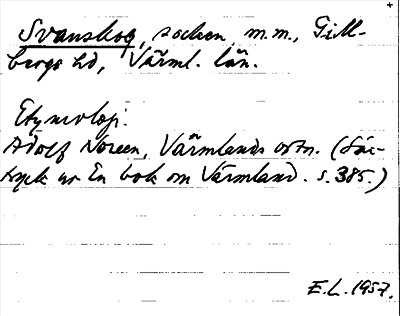 Svanskog, socken m.m., Gill-
bergs hd, Värml. län.
Etymologi:
Adolf Noreen, Värmlands ortn. (Sär-
tryck ur En bok om Värmland. s. 385.)
E.L. 1957.